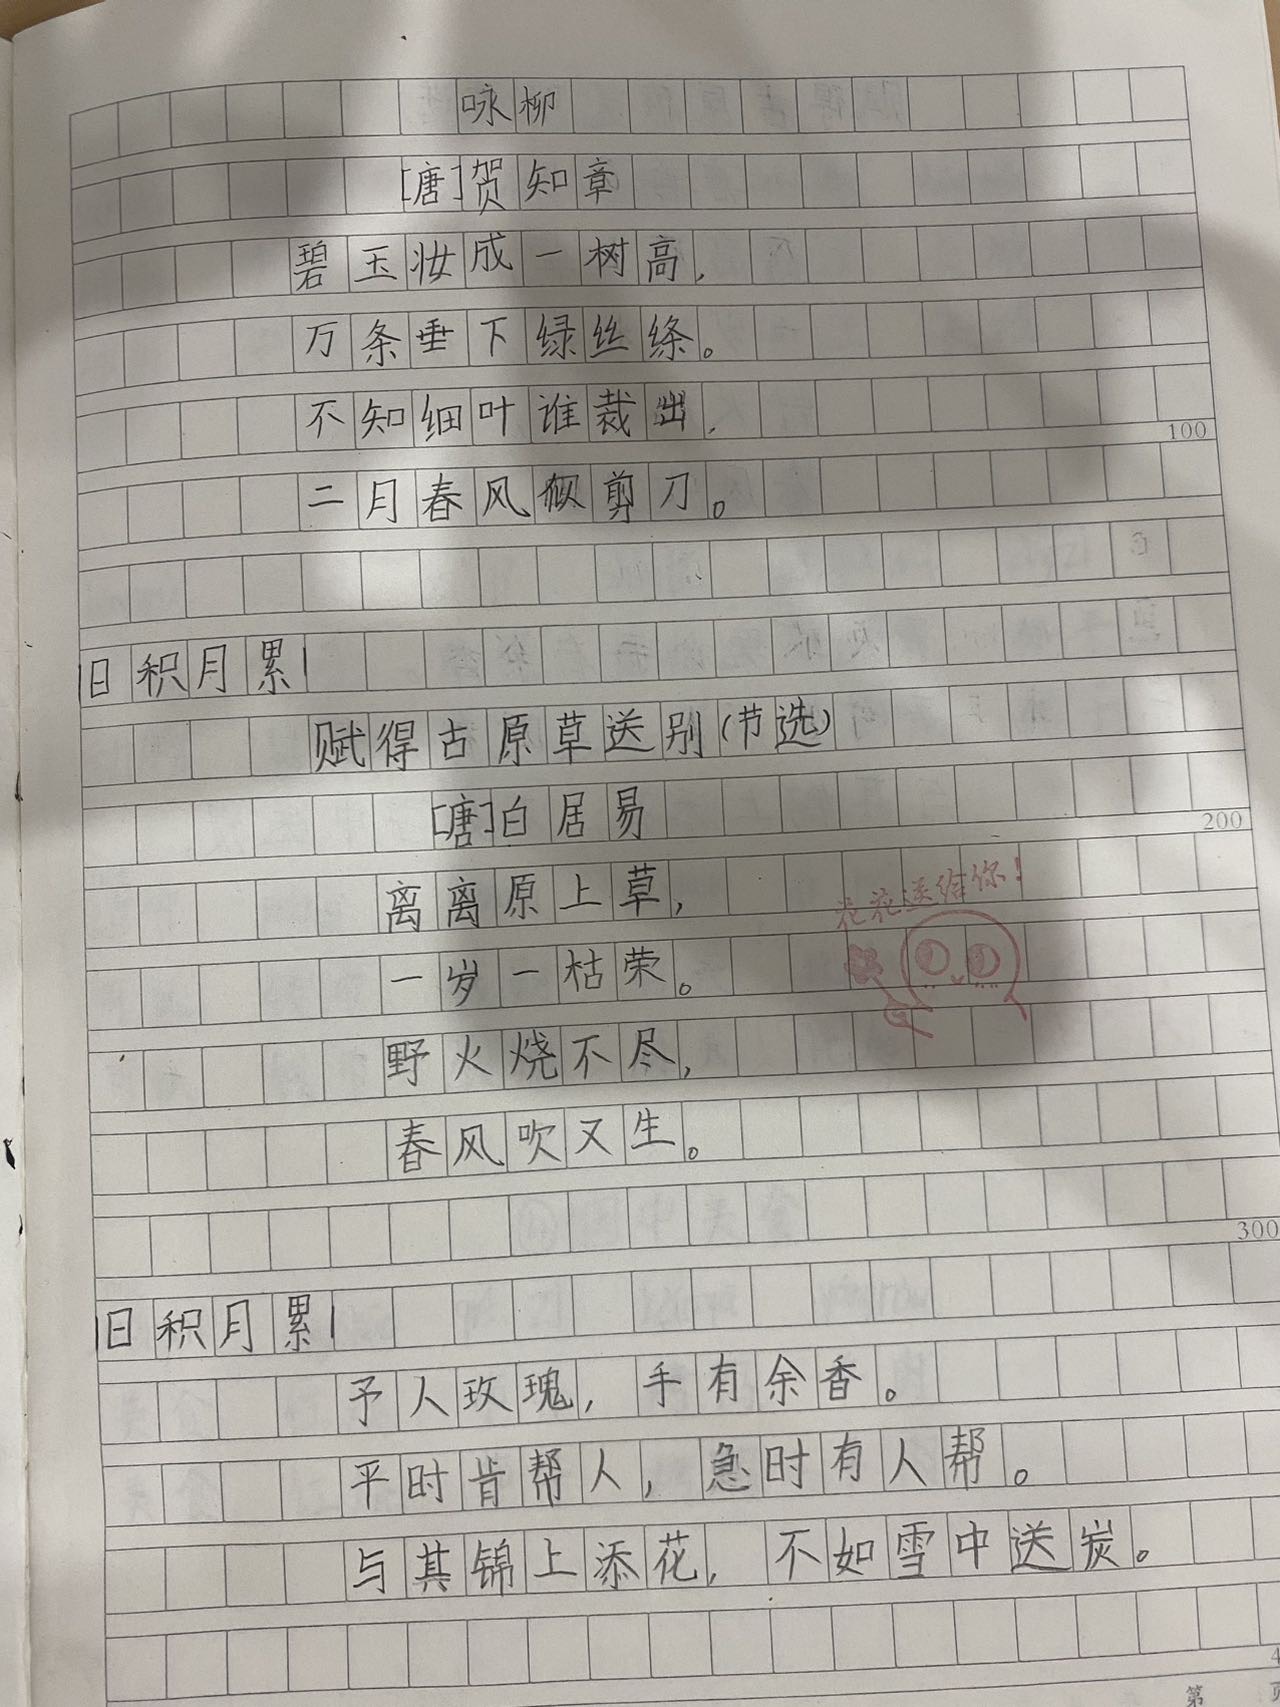 咏柳
[唐]贺知章
碧玉妆成一树高,
万条垂下绿丝绦。
不知细叶谁裁出,
100
二月春风似剪刀。
日积月累
赋得古原草送别(节选)
[唐]白居易
200
离离原上草,
花花送给你!
一岁一枯荣。
野火烧不尽,
春风吹又生。
300
日积月累
予人玫瑰,手有余香。
平时肯帮人,急时有人帮。
与其锦上添花,不如雪中送炭。
第 页